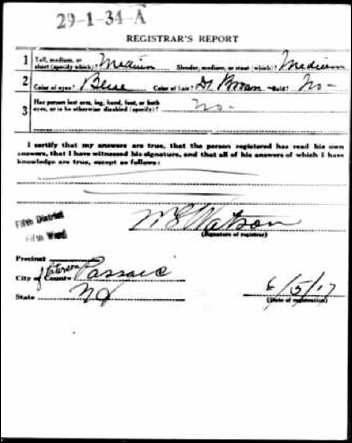 29-1-34-A
REGISTRAR'S REPORT
1 Tall, medium, or short (specify which)? Medium Slender, medium, or stout (which)? Medium
2 Color of eyes? Blue Color of hair? D. Brown Bald? No-
3 Has person lost arm, leg, hand, foot, or both eyes, or is he otherwise disabled (specify)? No-
I certify that my answers are true, that the person registered has read his own
answers, that I have witnessed his signature, and that all of his answers of which I
have knowledge are true, except as follows:
Watson
(Signature of registrar)
Fifth District
Fifth Ward
Precinct
City of Paterson
County Passaic
State NJ
6/5/17
(Date of registration)